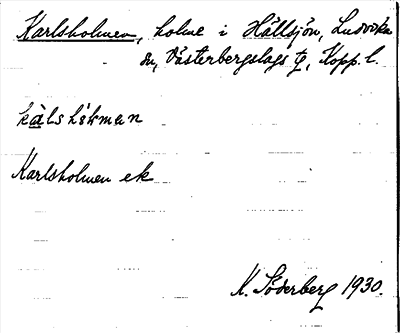 Karlsholmen, holme i Hällsjön, Ludvika
sn, Västerbergslags tg, Kopp. l.
Karlsholmen ek
K. Söderberg 1930.